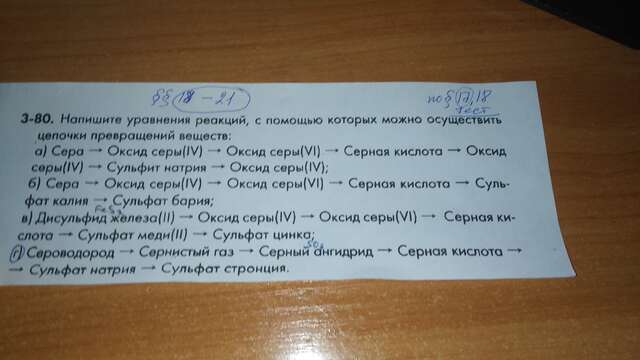 §§ 18 – 21 по § 17, 18
тест
3-80. Напишите уравнения реакций, с помощью которых можно осуществить
цепочки превращений веществ:
а) Сера → Оксид серы(IV) → Оксид серы(VI) → Серная кислота → Оксид
серы(IV) → Сульфит натрия → Оксид серы(IV);
б) Сера → Оксид серы(IV) → Оксид серы(VI) → Серная кислота → Суль-
фат калия → Сульфат бария;
FeS₂
в) Дисульфид железа(II) → Оксид серы(IV) → Оксид серы(VI) → Серная ки-
слота → Сульфат меди(II) → Сульфат цинка;
SO₃
г) Сероводород → Сернистый газ → Серный ангидрид → Серная кислота →
→ Сульфат натрия → Сульфат стронция.